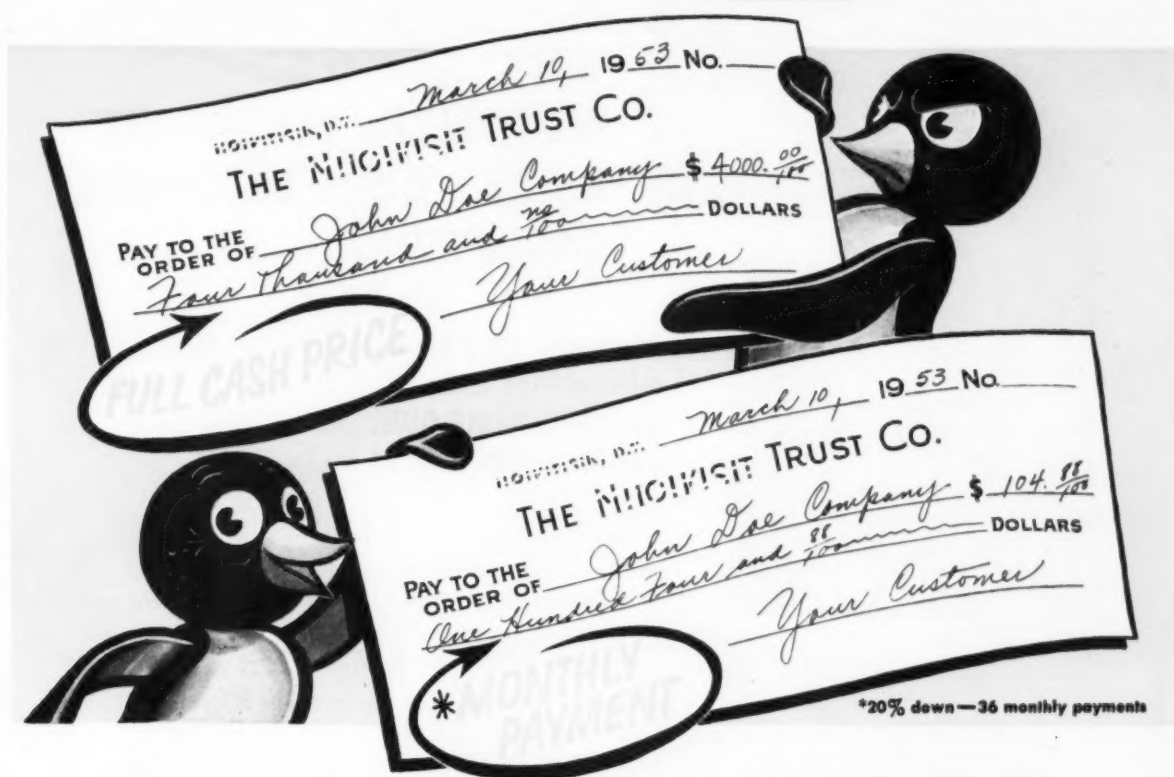 March 10, 1953 No.
THE TRUST CO.
PAY TO THE ORDER OF John Doe Company $ 4000. 00/100
Four Thousand and no/100 DOLLARS
Your Customer
FULL CASH PRICE
March 10, 1953 No.
THE TRUST CO.
PAY TO THE ORDER OF John Doe Company $ 104. 88/100
One Hundred Four and 88/100 DOLLARS
Your Customer
* MONTHLY
PAYMENT
*20% down—36 monthly payments